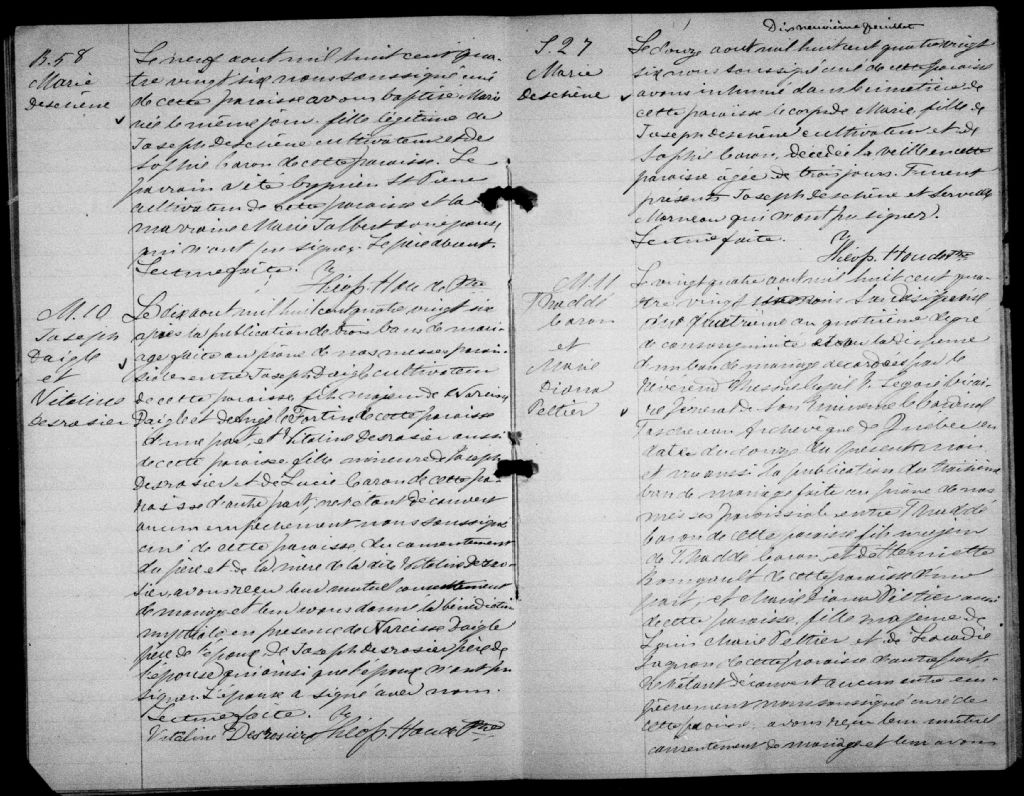 B. 58
Marie
Deschène
Le neuf aout mil huit cent qua-
tre vingt six nous soussigné curé
de cette paroisse avons baptisé Marie
née le même jour fille légitime de
Joseph Deschène cultivateur et de
Sophie Caron de cette paroisse. Le
parrain a été Cyprien St Pierre
cultivateur de cette paroisse et la
marraine Marie Talbot son épouse,
qui n'ont pu signer. Le père absent.
Lecture faite.
Théop. Houde Ptre
M. 10
Joseph
Daigle
et
Vitaline
Desrosier
Le dix aout mil huit cent quatre vingt six
après la publication de trois bans de mari-
age faite au prône de nos messes parois-
siales entre Joseph Daigle cultivateur
de cette paroisse, fils majeur de Narcisse
Daigle et de Fortin de cette paroisse
d'une part, et Vitaline Desrosier aussi
de cette paroisse, fille mineure de Joseph
Desrosier et de Lucie Caron de cette pa-
roisse d'autre part, ne s'étant découvert
aucun empêchement nous soussigné
curé de cette paroisse du consentement
du père et de la mère de la dite Vitaline Desro-
sier, avons reçu leur mutuel consentement
de mariage et leur avons donné la bénédiction
nuptiale en présence de Narcisse Daigle
père de l'époux, de Joseph Desrosier père de
l'épouse qui ainsi que l'époux n'ont pu
signer. L'épouse a signé avec nous.
Lecture faite.
Vitaline Desrosier Théop. Houde Ptre
Dixneuvième feuillet
S. 27
Marie
Deschène
Le douze aout mil huit cent quatre vingt
six nous soussigné curé de cette paroisse
avons inhumé dans le cimetière de
cette paroisse le corps de Marie, fille de
Joseph Deschène cultivateur et de
Sophie Caron, décédée la veille en cette
paroisse agée de trois jours. Furent
présents Joseph Deschène et
Morneau qui n'ont pu signer.
Lecture faite.
Théop. Houde Ptre
M. 11
Thaddé
Caron
et
Marie
Diana
Peltier
Le vingt quatre aout mil huit cent qua-
tre vingt six vu la dispense
du quatrième au quatrième degré
de consanguinité et vu la dispense
d'un ban de mariage accordées par le
Révérend Messire Cyrille E. Legaré Vicai-
re Général de Son Eminence le Cardinal
Taschereau Archevêque de Québec en
date du douze du présent mois
et vu aussi la publication du troisième
ban de mariage faite au prône de nos
messes paroissiales entre Thaddé
Caron de cette paroisse fils majeur
de Thaddé Caron, et de Henriette
de cette paroisse d'une
part, et Marie Diana Peltier aussi
de cette paroisse, fille majeure de
Louis Marie Peltier et de Léocadie
Gagnon de cette paroisse d'autre part,
Ne s'étant découvert aucun autre em-
pêchement nous soussigné curé de
cette paroisse, avons reçu leur mutuel
consentement de mariage et leur avons